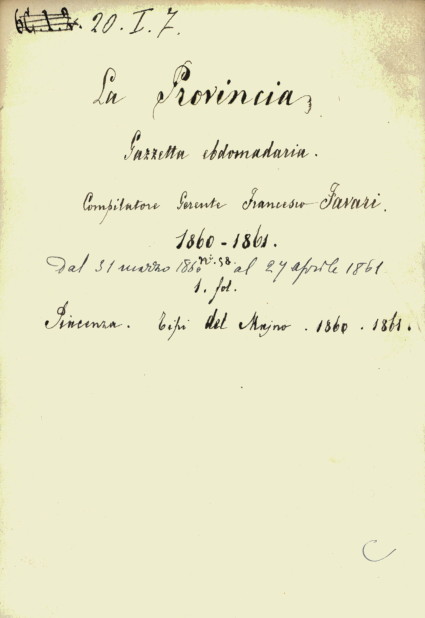 6C.1.2. 20. I. 7.
La Provincia
Gazzetta ebdomadaria.
Compilatore Gerente Francesco Favari.
1860-1861.
dal 31 marzo 1860 n.° 58. al 27 aprile 1861
1. fol.
Piacenza. Tipi del Majno. 1860. 1861.